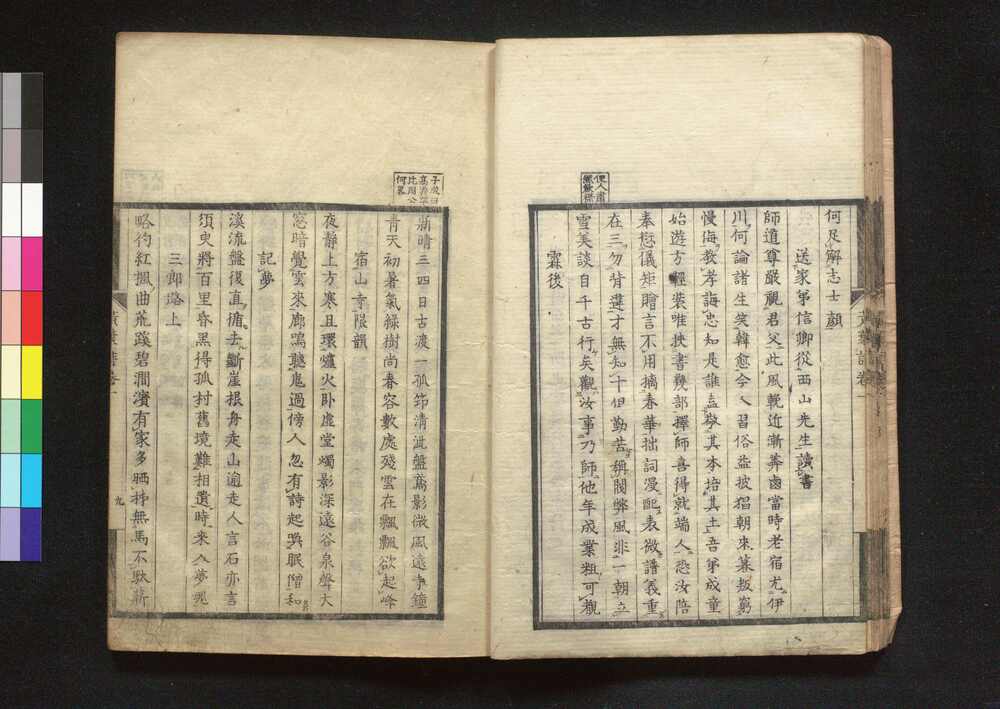 何足解志士顏
送家弟信卿從西山先生讀書
師道尊嚴視君父此風輓近漸莽鹵當時老宿尤伊
川何論諸生笑韓愈今人習俗益披猖朝來暮叛窮
慢侮教孝誨忠知是誰盍敬其本培其土吾弟成童
始遊方輕裝唯挾書幾部擇師喜得就端人恐汝陪
奉愆儀矩贈言不用摛春華拙詞漫配表微譜義重
在三勿背違才無知十但勤苦橋閱弊風非一朝立
雪美談自千古行矣觀汝事乃師他年成業粗可觀
霖後
新晴三四日古渡一孤筇清泚盤鳶影微風遠寺鐘
青天初暑氣綠樹尚春容數處殘雲在飄飄欲起峰
宿山寺限韻
夜靜上方寒且環爐火臥虛堂燭影深遠谷泉聲大
窓暗覺雲來廊鳴聽鬼過傍人忽有詩起喚眠僧和
記夢
溪流盤復直捕去斷崖根舟走山逾走人言石亦言
須臾將百里昏黑得孤村舊境難相遺時來入夢魂
三郎路上
略彴紅楓曲荒蹊碧澗濱有家多晒柿無馬不馱薪
黃葉
九